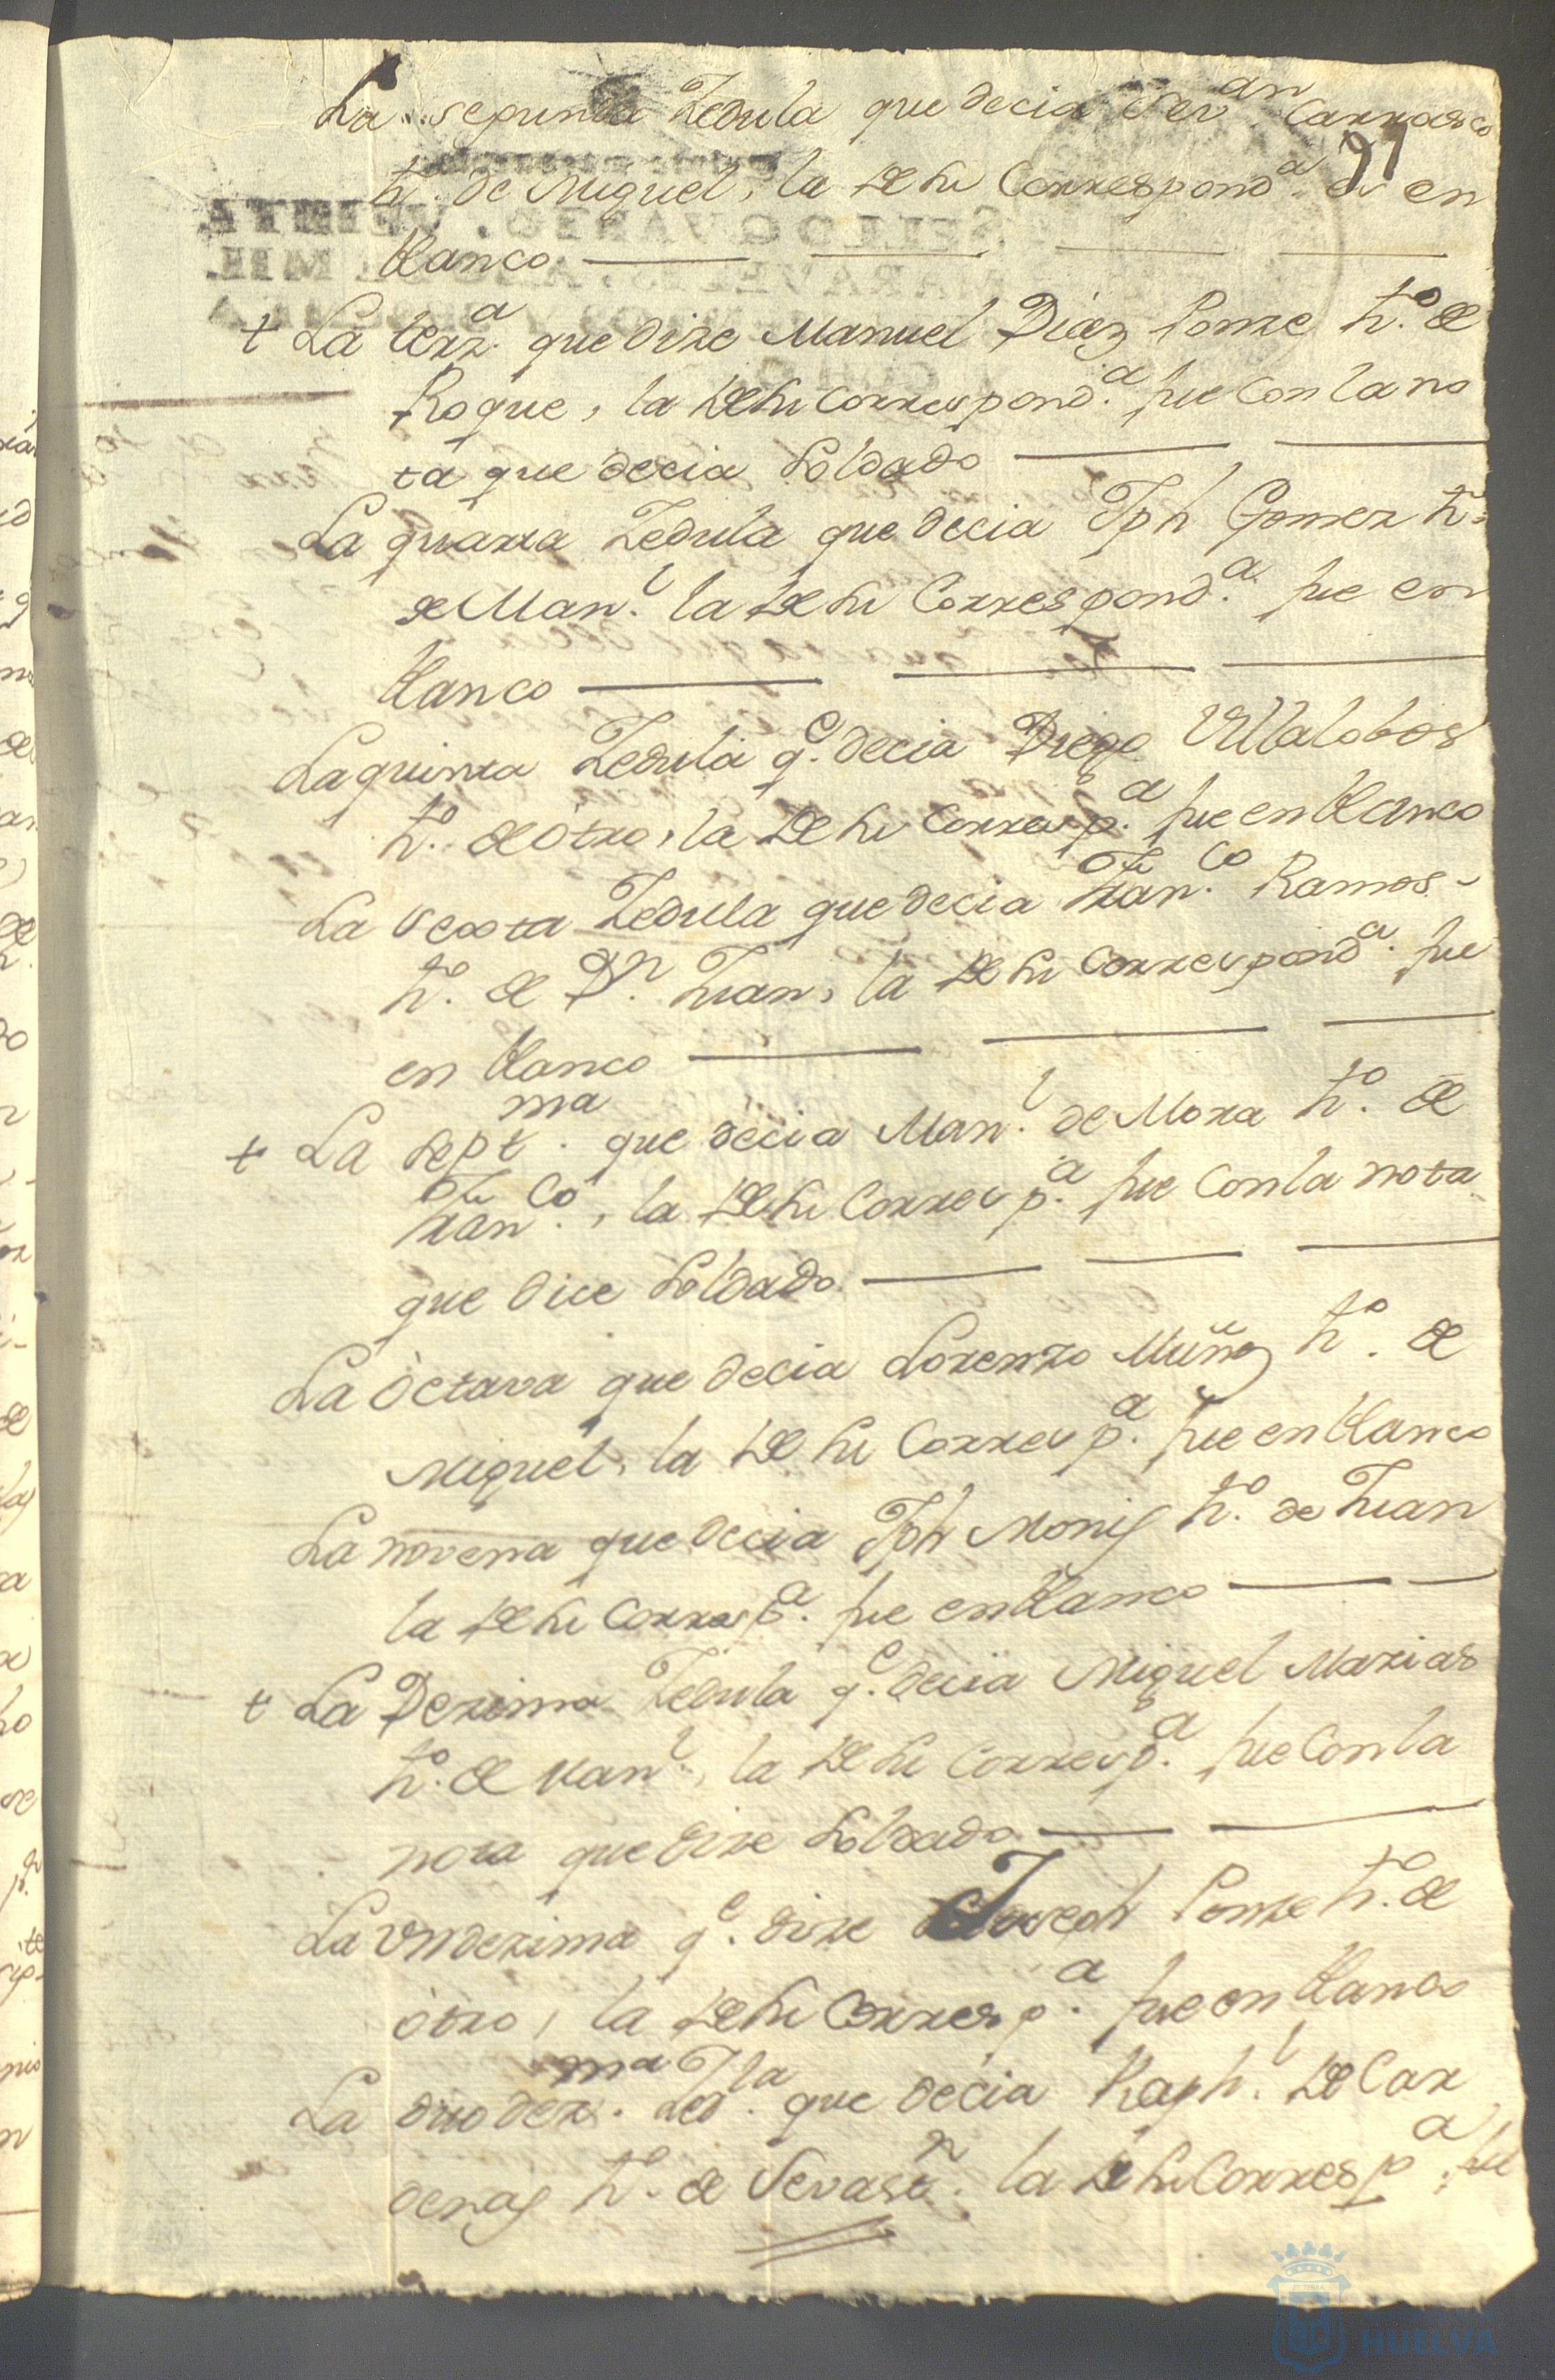 La segunda Zedula que decia Sev.an Carrasco
97
h.o de Miguel, la de su Correspond.a en
blanco
+ La terz.a que dize Manuel Diaz Ponze h.o de
Roque, la de su Correspond.a fue Con la no
ta que decia Soldado
La quarta Zedula que decia Jph Gomez h.o
de Man.l la de su Correspond.a fue en
blanco
La quinta Zedula q.e decia Diego Villalobos
h.o de otro, la de su Corresp.a fue en blanco
La sexta Zedula que decia Fran.co Ramos
h.o de D.n Juan, la de su Correspond.a fue
en blanco
+ La Sept.ma que decia Man.l de Mora h.o de
Fran.co, la de su Corresp.a fue Con la nota
que dice Soldado
La òctava que decia Lorenzo Muñoz h.o de
Miguel, la de su Corresp.a fue en blanco
La novena que decia Jph Monis h.o de Juan
la de su Corresp.a fue en blanco
+ La Dezima Zedula q.e decia Miguel Marias
h.o de Man.l, la de su Corresp.a fue Con la
nota que dize Soldado
La Vndezima q.e dize Joseph Ponze h.o de
òtro, la de su Corresp.a fue en blanco
La duodez.ma Zed.la que decia Raph.l de Car
denas h.o de Sevast.n la de su Corresp.a fue
HUELVA